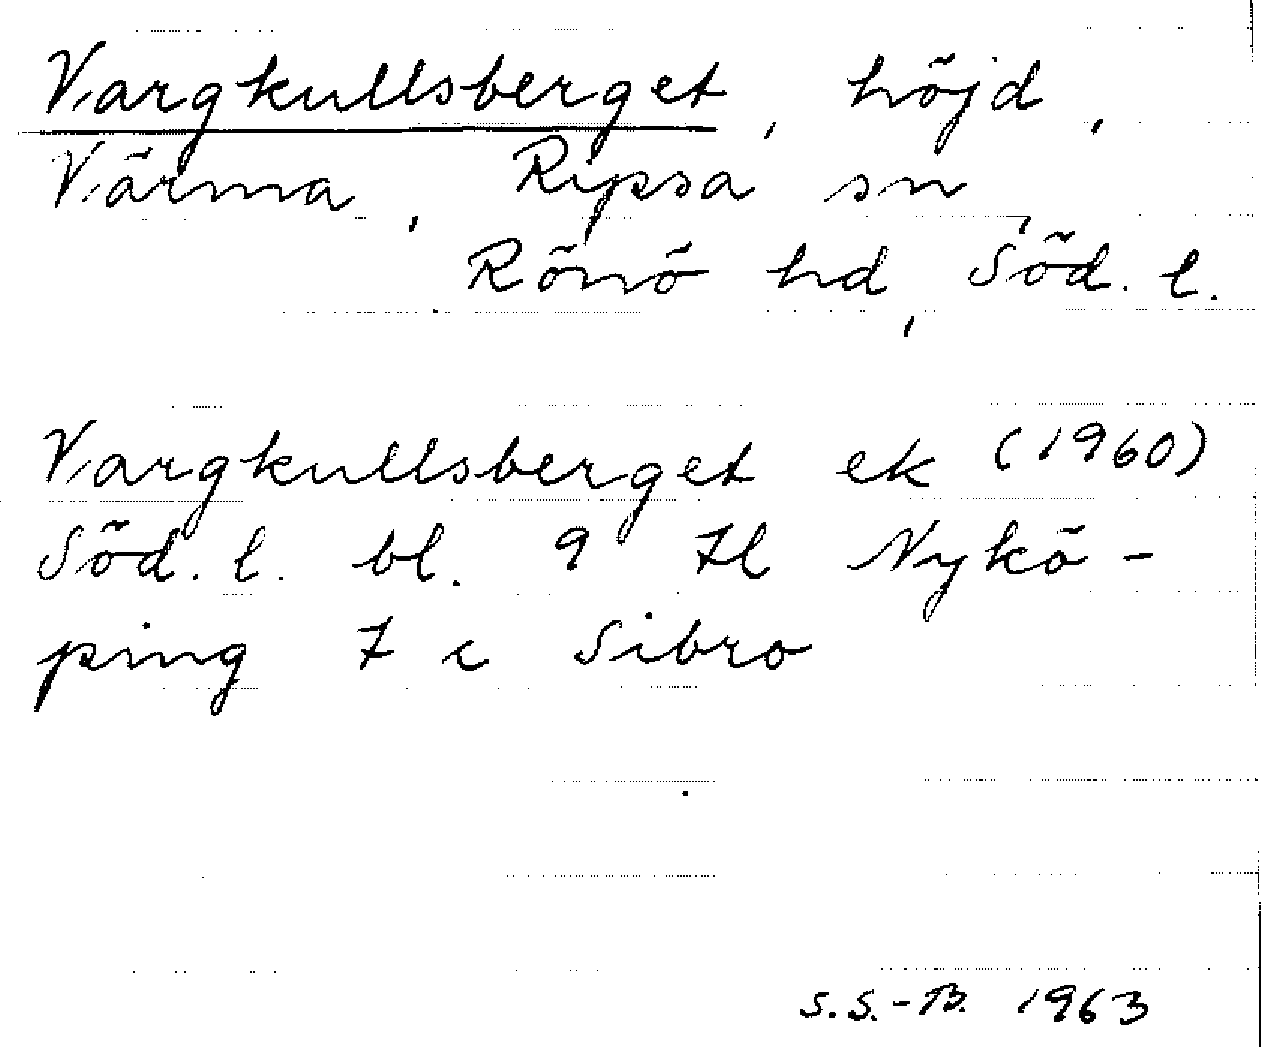 Vargkullsberget, höjd,
Värma, Rypsa sn,
Rönö hd, Söd. l.
Vargkullsberget ek (1960)
Söd. l. bl. 9 Il Nykö-
ping 7 c Sibro
S.S.-B. 1963